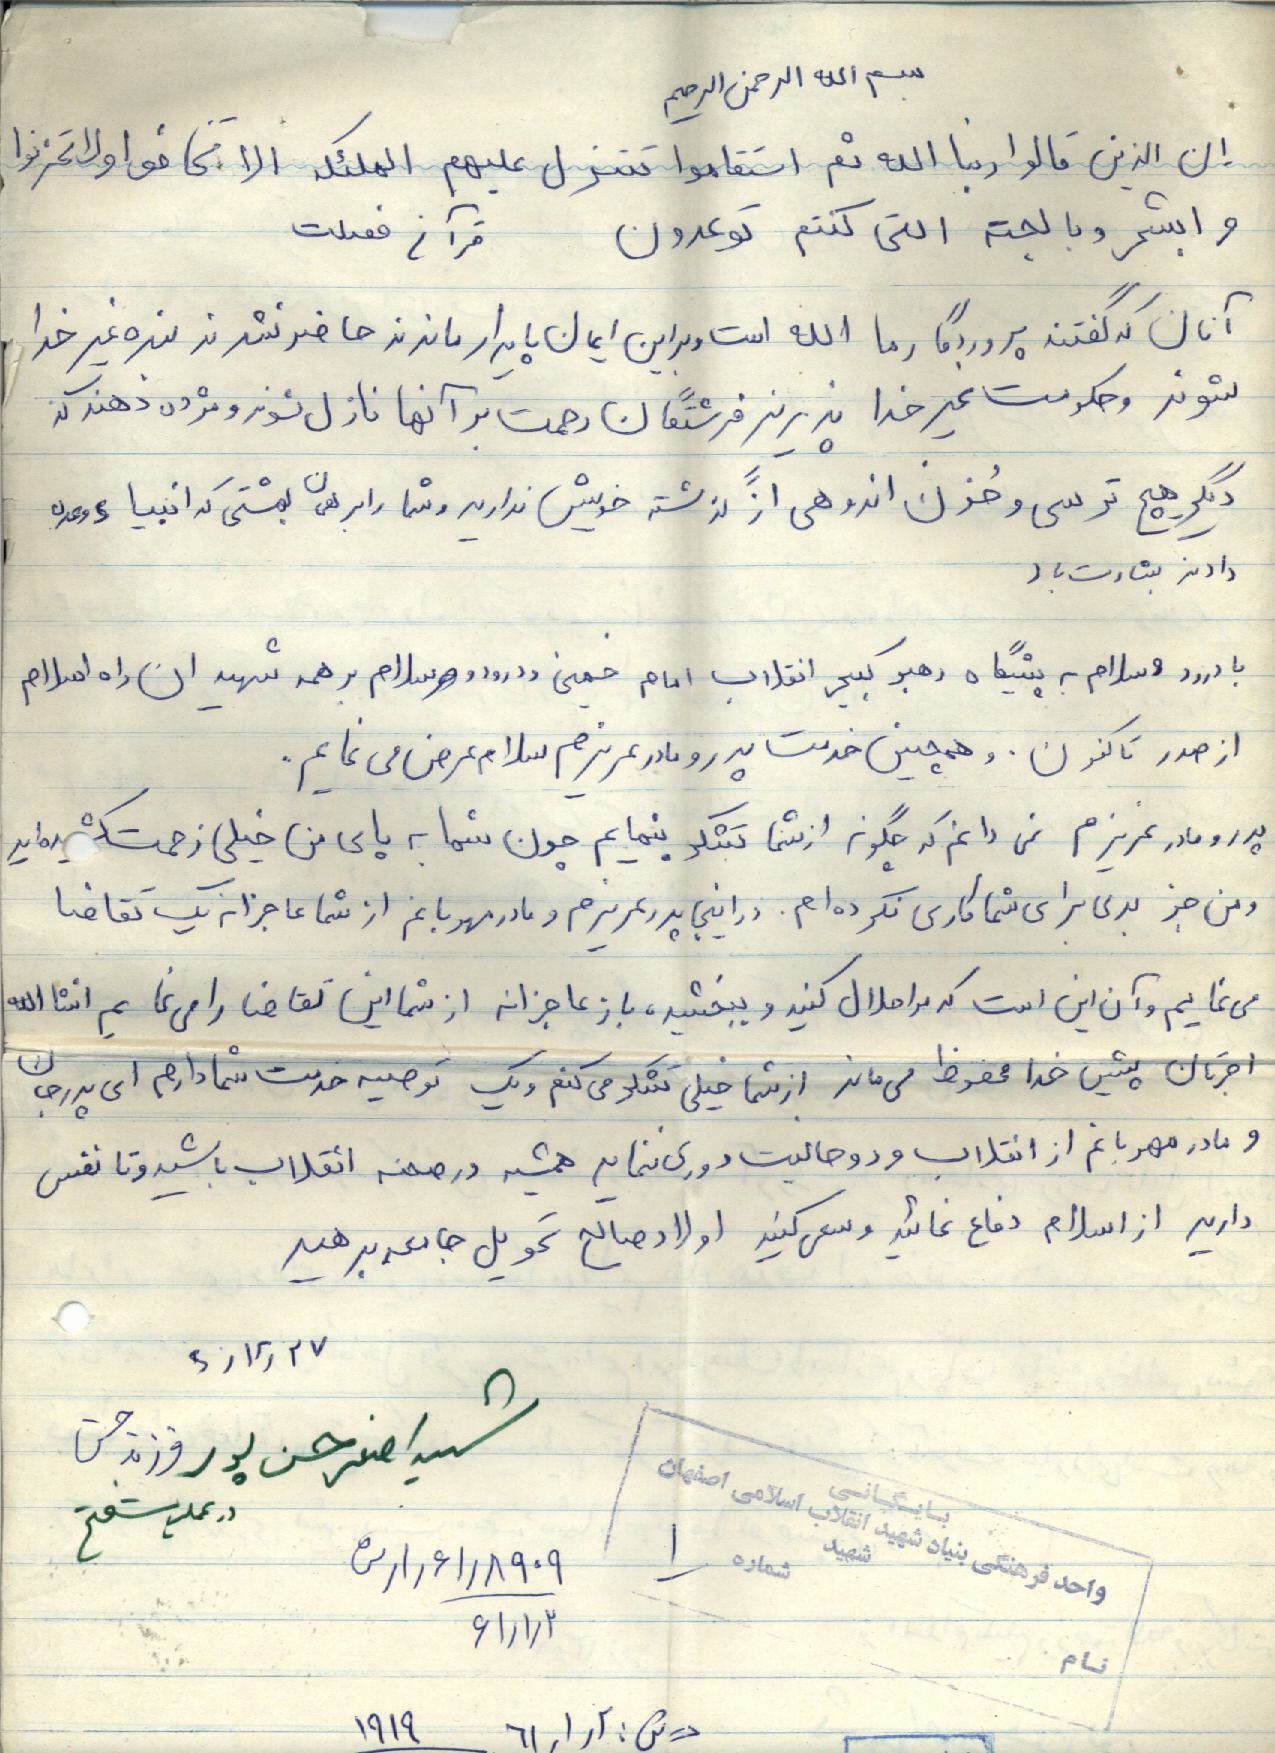 بسم الله الرحمن الرحیم
ان الذین قالوا ربنا الله ثم استقاموا تتنزل علیهم الملئکه الا تخافوا ولا تحزنوا
و ابشر و بالجنه التی کنتم توعدون قرآن فصلت
آنان که گفتند پروردگار ما الله است و براین ایمان پایدار ماندند حاضر نشدند بنده غیر خدا
شوند و حکومت غیر خدا پذیرند فرشتگان رحمت بر آنها نازل شوند و مژده دهند که
دیگر هیچ ترسی و حُزن اندوهی از گذشته خویش ندارید و شما را بر همان بهشتی که انبیا وعده
دادند بشارت باد
با درود و سلام به پیشگاه رهبر کبیر انقلاب امام خمینی و درود و سلام بر همه شهیدان راه اسلام
از صدر تاکنون . و همچنین خدمت پدر و مادر عزیزم سلام عرض می نمایم .
پدر و مادر عزیزم نمی دانم که چگونه از شما تشکر بنمایم چون شما به پای من خیلی زحمت کشیده اید
و من جز بدی برای شما کاری نکرده ام . در اینجا پدر عزیزم و مادر مهربانم از شما عاجزانه یک تقاضا
می نمایم و آن این است که مرا حلال کنید و ببخشید ، باز عاجزانه از شما این تقاضا را می نمایم انشاالله
اجرتان پیش خدا محفوظ می ماند از شما خیلی تشکر می کنم و یک توصیه خدمت شما دارم ای پدر جان
و مادر مهربانم از انقلاب و روحانیت دوری ننماید همیشه در صحنه انقلاب باشید و تا نفس
دارید از اسلام دفاع نمائید و سعی کنید اولاد صالح تحویل جامعه بدهید
شهید اصغر حسن پور فرزند حسن
در عملیات فتح
بایگانی
واحد فرهنگی بنیاد شهید انقلاب اسلامی اصفهان
شهید
شماره ۱
نام
۸۹۰۹
۶۱/۱/۲
۱۹۱۹